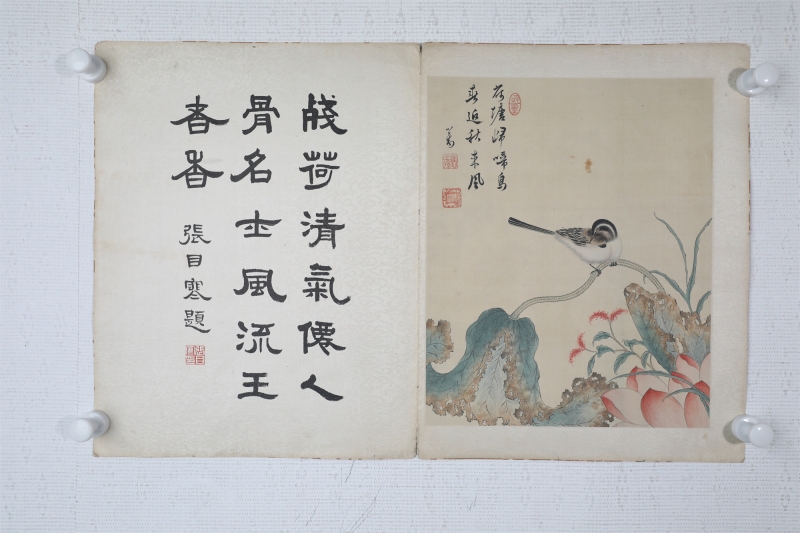 殘荷清氣僊人
骨名士風流王
者香
張目寒題
荷塘歸啼鳥
近秋來風